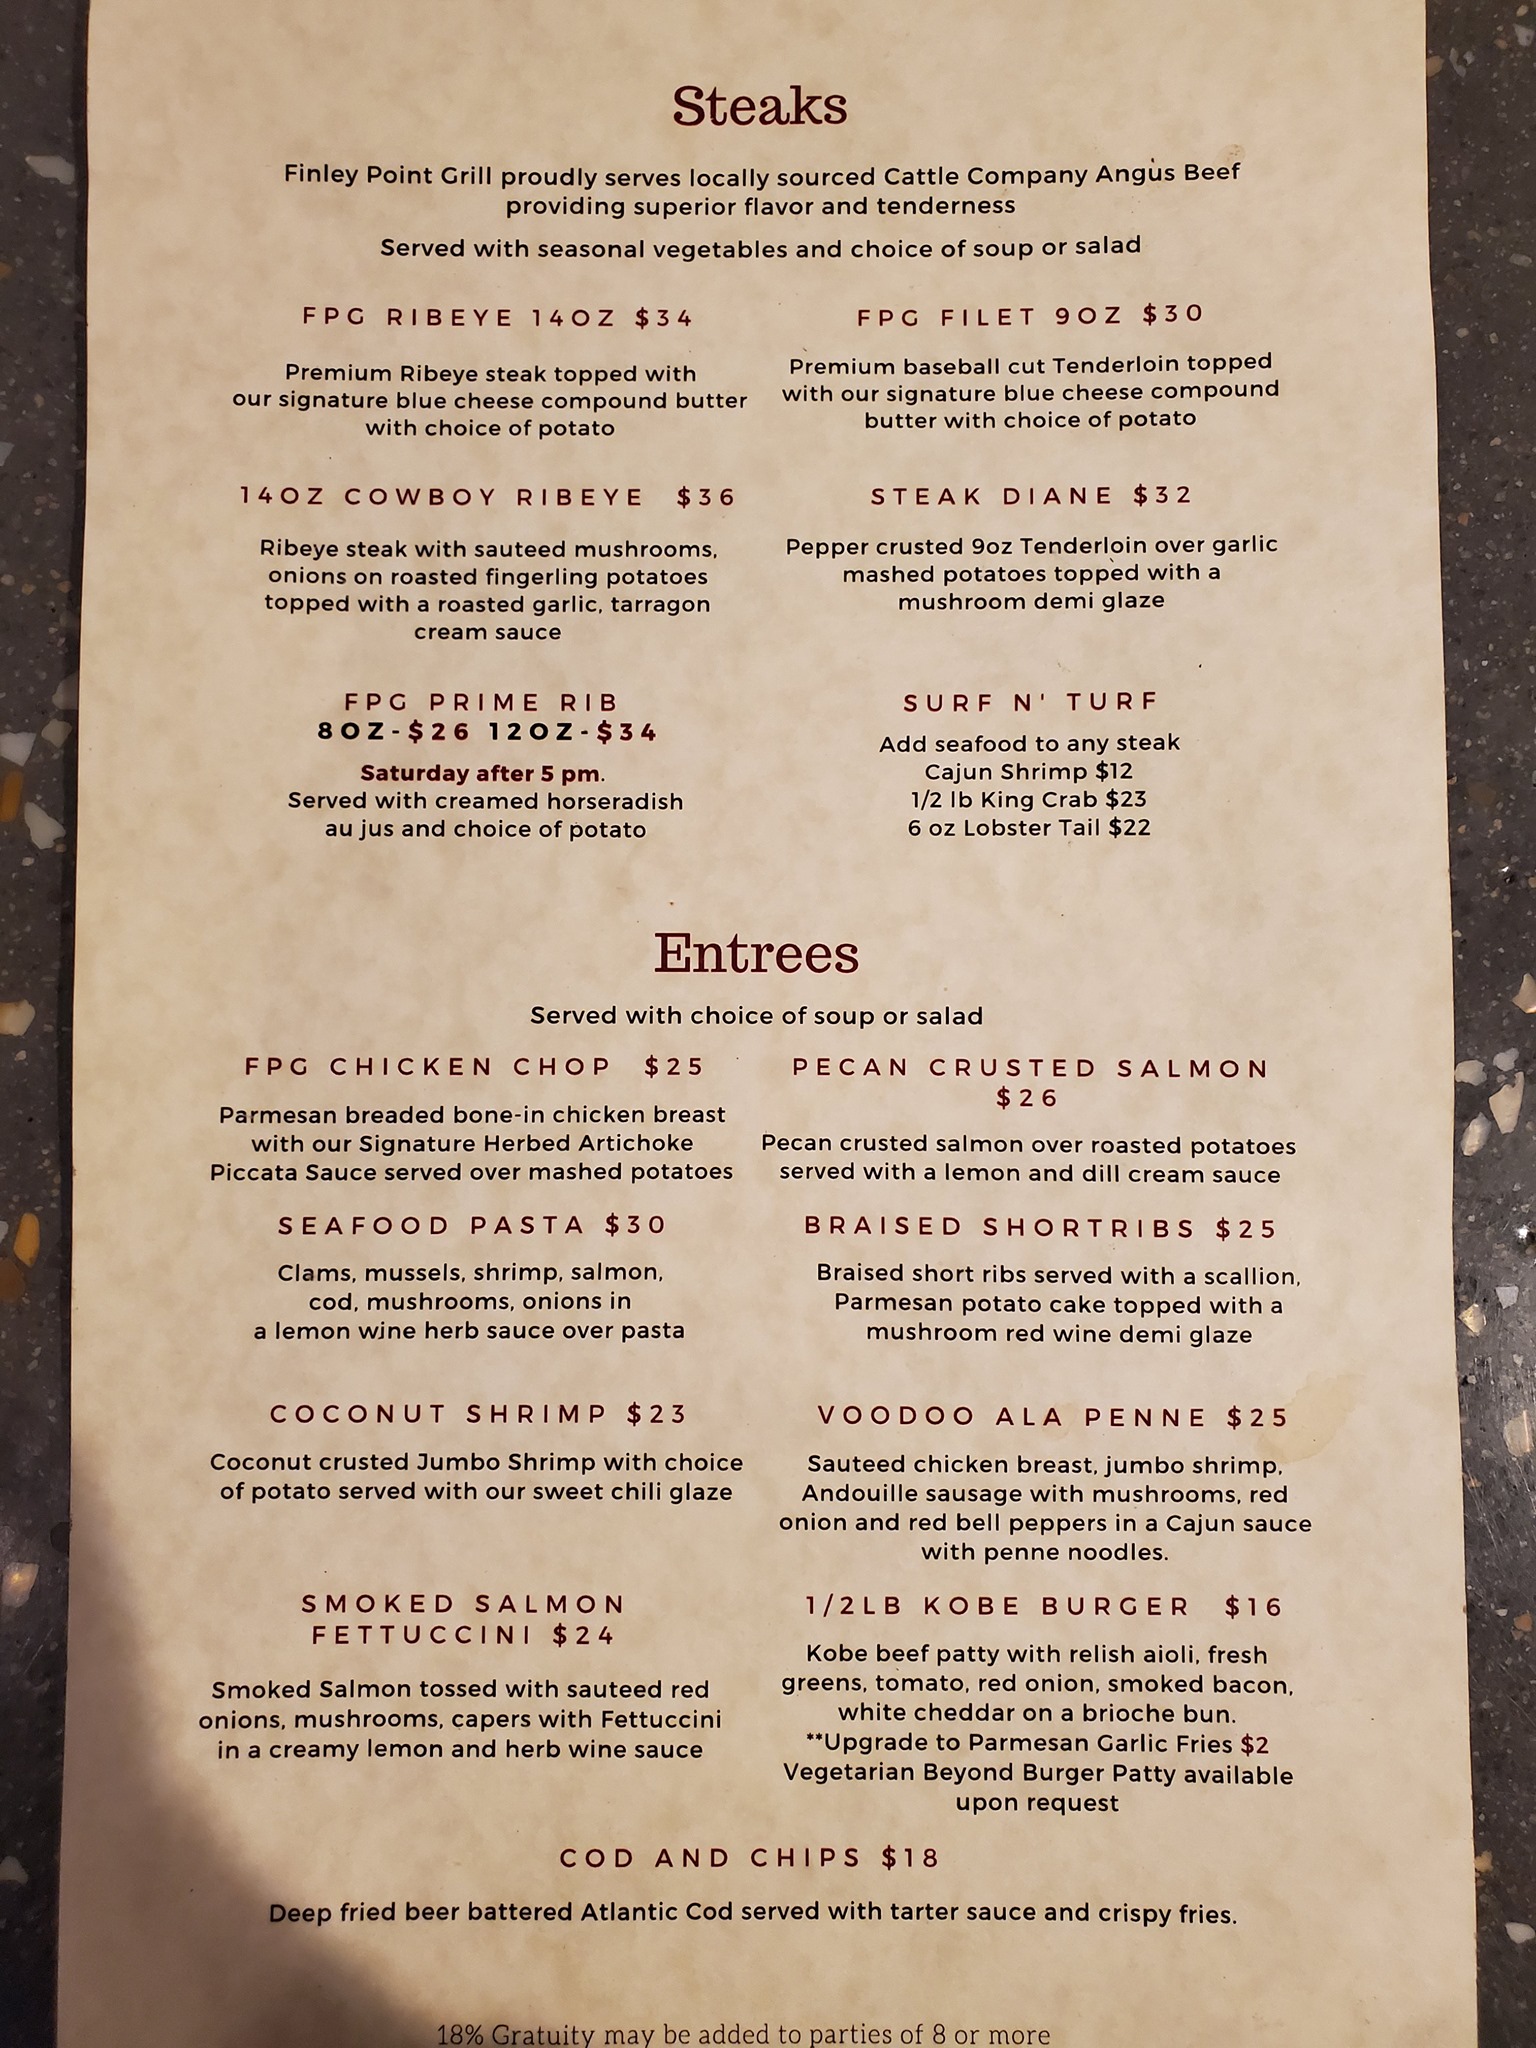 Steaks
Finley Point Grill proudly serves locally sourced Cattle Company Angus Beef
providing superior flavor and tenderness
Served with seasonal vegetables and choice of soup or salad
FPG RIBEYE 14OZ $34
Premium Ribeye steak topped with
our signature blue cheese compound butter
with choice of potato
FPG FILET 9OZ $30
Premium baseball cut Tenderloin topped
with our signature blue cheese compound
butter with choice of potato
14OZ COWBOY RIBEYE $36
Ribeye steak with sauteed mushrooms,
onions on roasted fingerling potatoes
topped with a roasted garlic, tarragon
cream sauce
STEAK DIANE $32
Pepper crusted 9oz Tenderloin over garlic
mashed potatoes topped with a
mushroom demi glaze
FPG PRIME RIB
8OZ-$26 12OZ-$34
Saturday after 5 pm.
Served with creamed horseradish
au jus and choice of potato
SURF N' TURF
Add seafood to any steak
Cajun Shrimp $12
1/2 lb King Crab $23
6 oz Lobster Tail $22
Entrees
Served with choice of soup or salad
FPG CHICKEN CHOP $25
Parmesan breaded bone-in chicken breast
with our Signature Herbed Artichoke
Piccata Sauce served over mashed potatoes
PECAN CRUSTED SALMON
$26
Pecan crusted salmon over roasted potatoes
served with a lemon and dill cream sauce
SEAFOOD PASTA $30
Clams, mussels, shrimp, salmon,
cod, mushrooms, onions in
a lemon wine herb sauce over pasta
BRAISED SHORTRIBS $25
Braised short ribs served with a scallion,
Parmesan potato cake topped with a
mushroom red wine demi glaze
COCONUT SHRIMP $23
Coconut crusted Jumbo Shrimp with choice
of potato served with our sweet chili glaze
VOODOO ALA PENNE $25
Sauteed chicken breast, jumbo shrimp,
Andouille sausage with mushrooms, red
onion and red bell peppers in a Cajun sauce
with penne noodles.
SMOKED SALMON
FETTUCCINI $24
Smoked Salmon tossed with sauteed red
onions, mushrooms, capers with Fettuccini
in a creamy lemon and herb wine sauce
1/2LB KOBE BURGER $16
Kobe beef patty with relish aioli, fresh
greens, tomato, red onion, smoked bacon,
white cheddar on a brioche bun.
**Upgrade to Parmesan Garlic Fries $2
Vegetarian Beyond Burger Patty available
upon request
COD AND CHIPS $18
Deep fried beer battered Atlantic Cod served with tarter sauce and crispy fries.
18% Gratuity may be added to parties of 8 or more